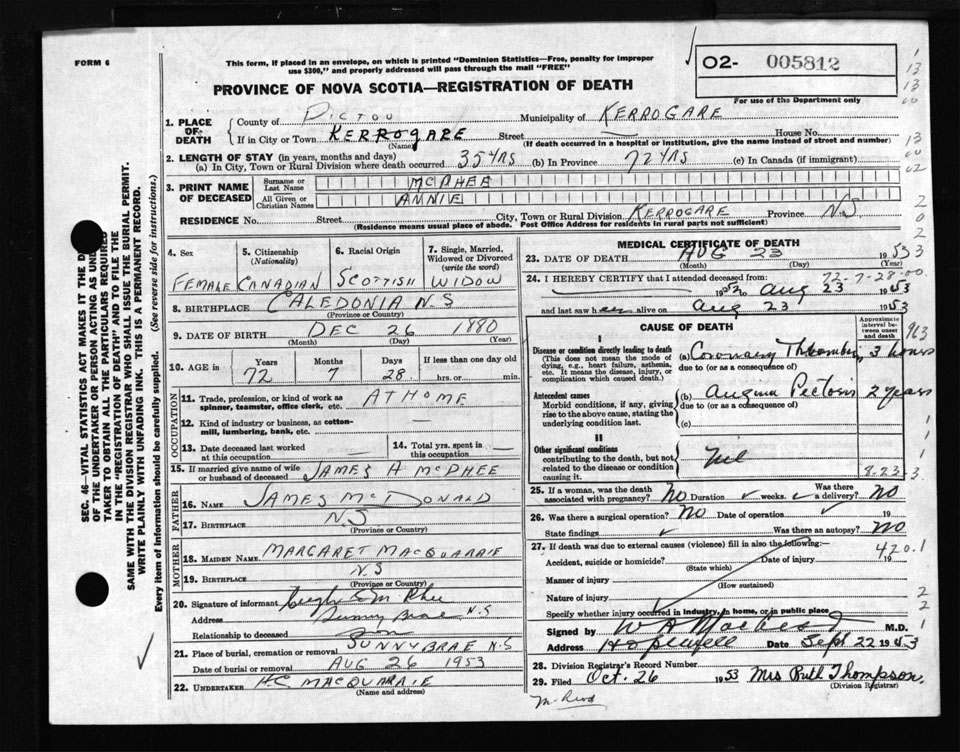 FORM 6
This form, if placed in an envelope, on which is printed "Dominion Statistics—Free, penalty for improper
use $300," and properly addressed will pass through the mail "FREE"
PROVINCE OF NOVA SCOTIA—REGISTRATION OF DEATH
02- 005812
For use of the Department only
1. PLACE OF DEATH
County of PICTOU Municipality of KERROGARE
If in City or Town KERROGARE Street House No.
(Name) (If death occurred in a hospital or institution, give the name instead of street and number)
2. LENGTH OF STAY (in years, months and days)
(a) In City, Town or Rural Division where death occurred 35 YRS (b) In Province 72 YRS (c) In Canada (if immigrant)
3. PRINT NAME OF DECEASED
Surname or Last Name MCPHEE
All Given or Christian Names ANNIE
RESIDENCE No. Street City, Town or Rural Division KERROGARE Province N.S.
(Residence means usual place of abode. Post Office Address for residents in rural parts not sufficient)
4. Sex FEMALE
5. Citizenship (Nationality) CANADIAN
6. Racial Origin SCOTTISH
7. Single, Married, Widowed or Divorced (write the word) WIDOW
8. BIRTHPLACE CALEDONIA N S
(Province or Country)
9. DATE OF BIRTH DEC 26 1880
(Month) (Day) (Year)
10. AGE in Years Months Days If less than one day old
72 7 28 hrs. or min.
OCCUPATION
11. Trade, profession, or kind of work as spinner, teamster, office clerk, etc. AT HOME
12. Kind of industry or business, as cotton-mill, lumbering, bank, etc.
13. Date deceased last worked at this occupation
14. Total yrs. spent in this occupation
15. If married give name of wife or husband of deceased JAMES A MCPHEE
FATHER
16. NAME JAMES MCDONALD
17. BIRTHPLACE NS
(Province or Country)
MOTHER
18. MAIDEN NAME MARGARET MACQUARRIE
19. BIRTHPLACE N S
(Province or Country)
20. Signature of informant McPhee
Address Sunny Brae N.S
Relationship to deceased Son
21. Place of burial, cremation or removal SUNNYBRAE N.S
Date of burial or removal AUG 26 1953
22. UNDERTAKER H.C. MACQUARRIE
(Name and address)
MEDICAL CERTIFICATE OF DEATH
23. DATE OF DEATH AUG 23 1953
(Month) (Day) (Year)
72-7-28-00
24. I HEREBY CERTIFY that I attended deceased from:
1952 to Aug 23 1953
and last saw her alive on Aug 23 1953
CAUSE OF DEATH
Approximate interval between onset and death
I
Disease or condition directly leading to death
(This does not mean the mode of dying, e.g., heart failure, asthenia, etc. It means the disease, injury, or complication which caused death.)
(a) Coronary Thrombosis 3 hours
due to (or as a consequence of)
Antecedent causes
Morbid conditions, if any, giving rise to the above cause, stating the underlying condition last.
(b) Angina Pectoris 2 years
due to (or as a consequence of)
(c)
II
Other significant conditions
contributing to the death, but not related to the disease or condition causing it.
Nil
8-23-3
25. If a woman, was the death associated with pregnancy? NO Duration weeks. Was there a delivery? NO
26. Was there a surgical operation? NO Date of operation 19
State findings Was there an autopsy? NO
27. If death was due to external causes (violence) fill in also the following:—
420.1
Accident, suicide or homicide? Date of injury 19
(State which)
Manner of injury
(How sustained)
Nature of injury
Specify whether injury occurred in industry, in home, or in public place
Signed by M.D.
Address Hopewell Date Sept 22 1953
28. Division Registrar's Record Number
29. Filed Oct. 26 1953 Mrs Ruth Thompson
(Division Registrar)
SEC. 46—VITAL STATISTICS ACT MAKES IT THE
OF THE UNDERTAKER OR PERSON ACTING AS
TAKER TO OBTAIN ALL THE PARTICULARS REQUIRED
IN THE "REGISTRATION OF DEATH" AND TO FILE THE
SAME WITH THE DIVISION REGISTRAR WHO SHALL ISSUE THE BURIAL PERMIT.
WRITE PLAINLY WITH UNFADING INK. THIS IS A PERMANENT RECORD.
Every item of Information should be carefully supplied. (See reverse side for instructions.)